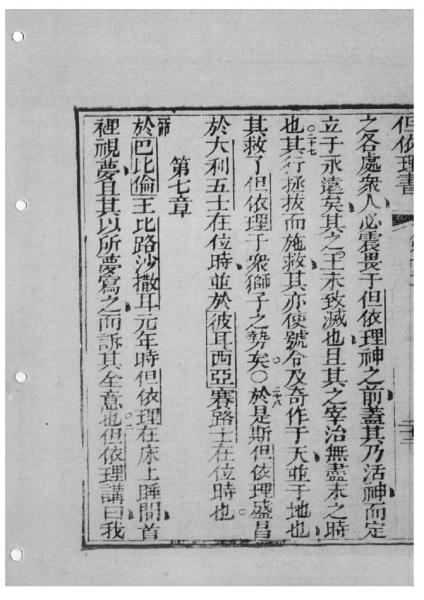 但依理書
之各處眾人必震畏于但依理神之前蓋其乃活神而定
立于永遠矣其之王未致滅也且其之宰治無盡末之時
也○二十七其行拯拔而施救其亦使號令及奇作于天並于地也
其救了但依理于眾獅子之勢矣○二十八於是斯但依理盛昌
於大利五士在位時並於彼耳西亞賽路士在位時也○
第七章
節
於巴比倫王比路沙撒耳元年時但依理在床上睡間首
裡視夢且其以所夢寫之而訴其全意也○二但依理講曰我